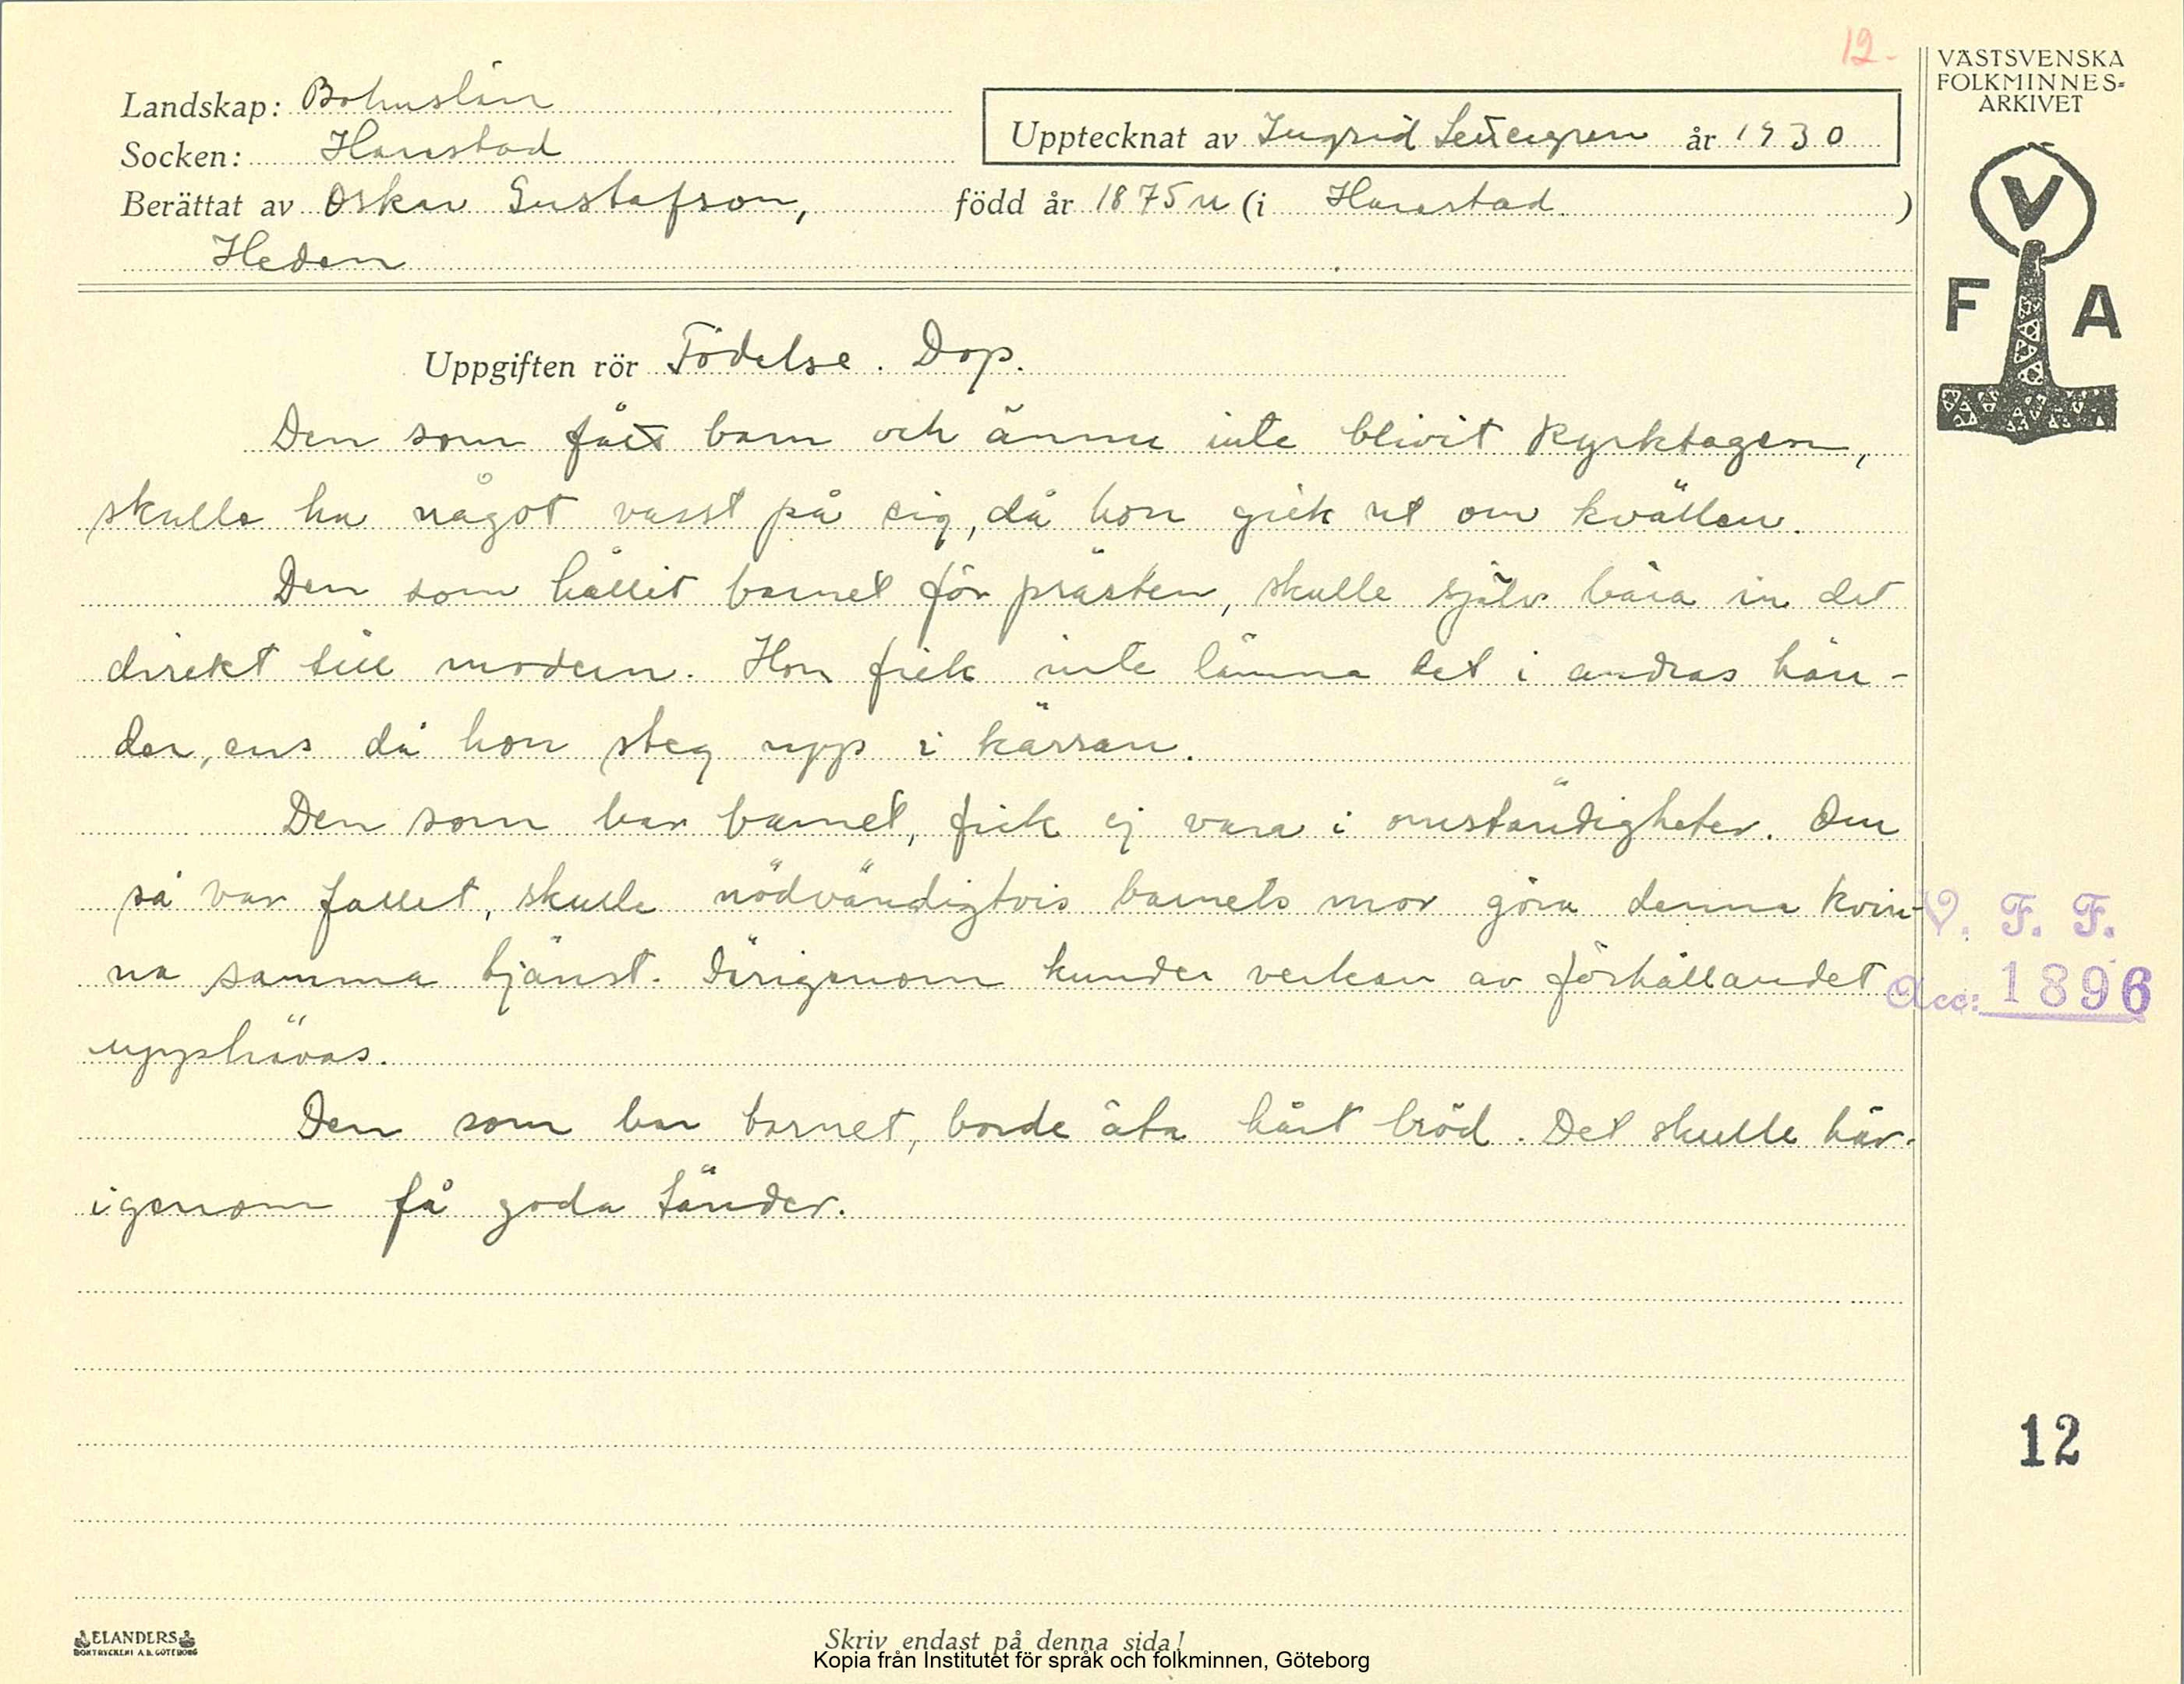 12.
VÄSTSVENSKA
FOLKMINNES-
ARKIVET
Landskap: Bohuslän
Socken: Harestad
Upptecknat av Ingrid år 1930
Berättat av Oskar Gustafson, född år 1875 (i Harestad )
Heden
V
F A
Uppgiften rör Födelse. Dop.
Den som fått barn och ännu inte blivit kyrktagen,
skulle ha något vasst på sig, då hon gick ut om kvällen.
Den som hållit barnet för prästen, skulle själv bära in det
direkt till modern. Hon fick inte lämna det i andras hän-
der, ens då hon steg upp i kärran.
Den som bar barnet, fick ej vara i omständigheter. Om
så var fallet, skulle nödvändigtvis barnets mor göra denna kvin-
na samma tjänst. Därigenom kunde verkan av förhållandet
upphävas.
V. F. F.
Acc: 1896
Den som bar barnet, borde äta hårt bröd. Det skulle här-
igenom få goda tänder.
12
ELANDERS
BOKTRYCKERI A.B. GÖTEBORG
Skriv endast på denna sida!
Kopia från Institutet för språk och folkminnen, Göteborg